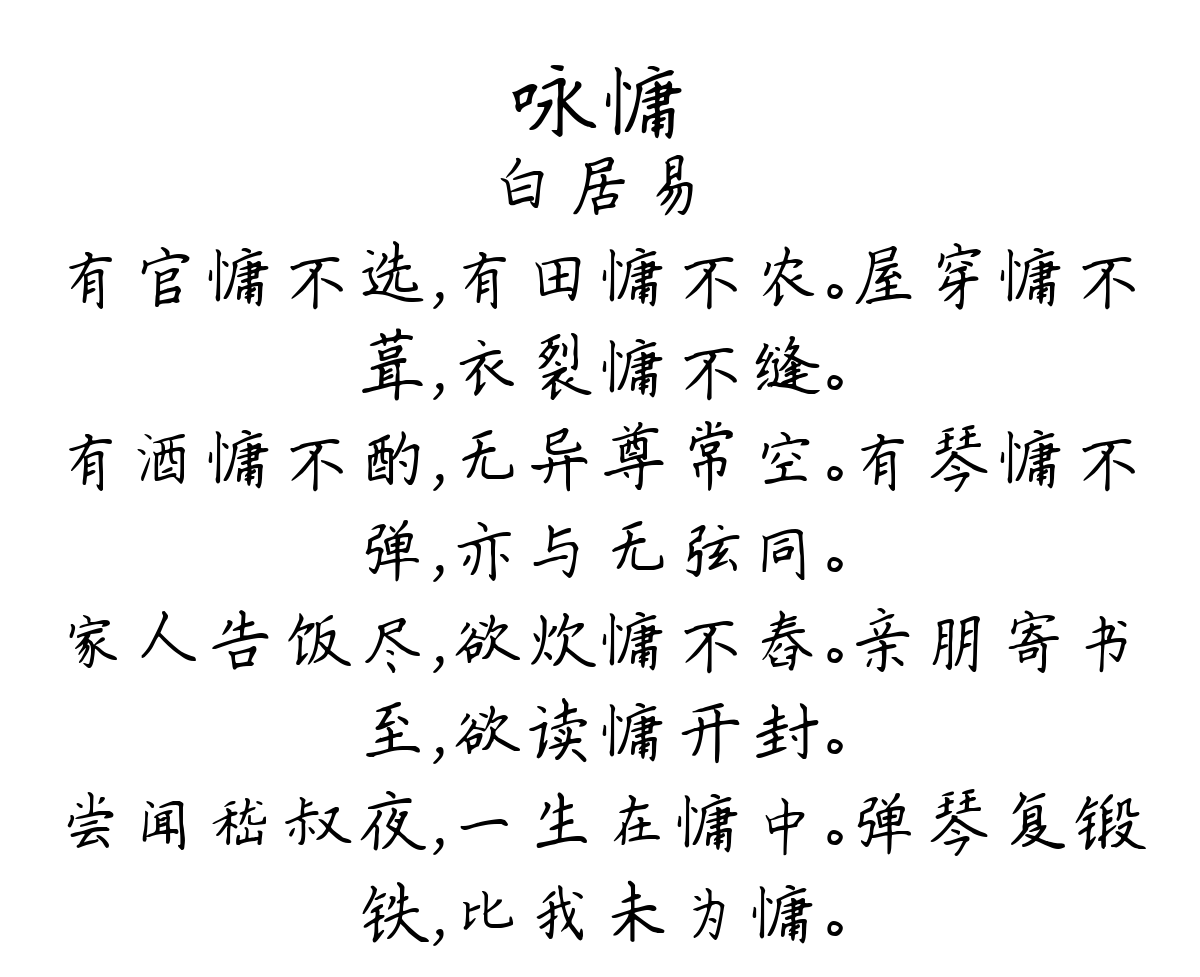 咏慵
白居易
有官慵不选,有田慵不农。屋穿慵不
葺,衣裂慵不缝。
有酒慵不酌,无异尊常空。有琴慵不
弹,亦与无弦同。
家人告饭尽,欲炊慵不舂。亲朋寄书
至,欲读慵开封。
尝闻嵇叔夜,一生在慵中。弹琴复锻
铁,比我未为慵。